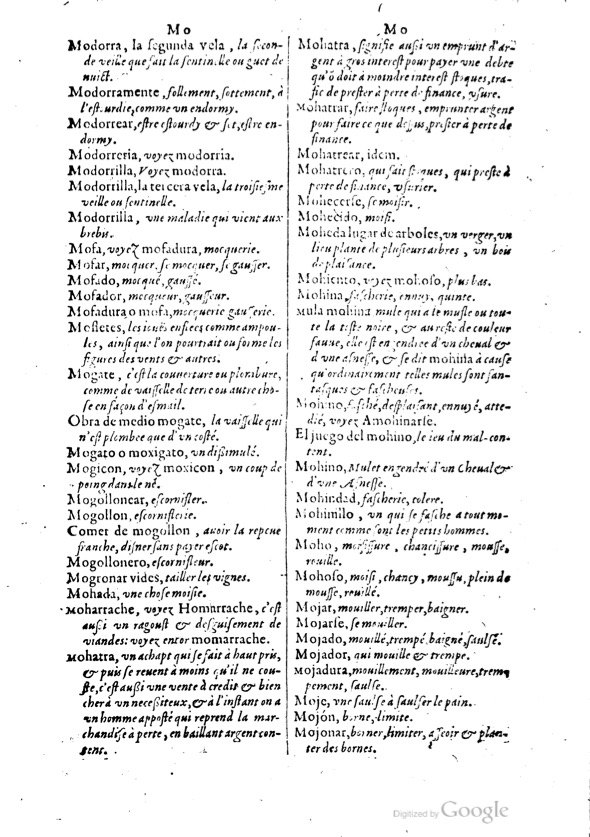 Mo
Modorra, la segunda vela, la secon-
de veille que fait la sentinelle ou guet de
nuict.
Modorramente, follement, sottement, à
l'estourdie, comme un endormy.
Modorrear, estre estourdy & sot, estre en-
dormy.
Modorreria, voyez modorria.
Modorrilla, Voyez modorra.
Modorrilla, la tercera vela, la troisiesme
veille ou sentinelle.
Modorrilla, vne maladie qui vient aux
brebis.
Mofa, voyez mofadura, mocquerie.
Mofar, mocquer, se mocquer, se gausser.
Mofado, mocqué, gaussé.
Mofador, mocqueur, gausseur.
Mofadura o mofa, mocquerie gausserie.
Mofletes, les iouës enflees comme ampou-
les, ainsi que l'on pourtrait ou forme les
figures des vents & autres.
Mogate, c'est la couuerture ou plombure,
comme de vaisselle de terre ou autre cho-
se en façon d'esmail.
Obra de medio mogate, la vaisselle qui
n'est plombee que d'vn costé.
Mogato o moxigato, vn dissimulé.
Mogicon, voyez moxicon, vn coup de
poing dans le né.
Mogollonear, escornifler.
Mogollon, escorniflerie.
Comer de mogollon, auoir la repeue
franche, disner sans payer escot.
Mogollonero, escornifleur.
Mogronar vides, tailler les vignes.
Mohada, vne chose moisie.
Moharrache, voyez Homarrache, c'est
aussi vn ragoust & desguisement de
viandes: voyez encor momarrache.
Mohatra, vn achapt qui se fait à haut pris,
& puis se reuent à moins qu'il ne cou-
ste, c'est aussi vne vente à credit & bien
cher à vn necessiteux, & à l'instant on a
vn homme apposté qui reprend la mar-
chandise à perte, en baillant argent con-
tent.
Mo
Mohatra, signifie aussi vn emprunt d'ar-
gent à gros interest pour payer vne debte
qu'ō doit à moindre interest stoques, tra-
fic de prester à perte de finance, vsure.
Mohatrar, faire stoques, emprunter argent
pour faire ce que dessus, prester à perte de
finance.
Mohatrear, idem.
Mohatrero, qui fait stoques, qui preste à
perte de finance, vsurier.
Mohecerse, se moisir.
Mohecido, moisi.
Moheda lugar de arboles, vn verger, vn
lieu planté de plusieurs arbres, vn bois
de plaisance.
Mohiento, voyez mohoso, plus bas.
Mohina, fascherie, ennuy, quinte.
Mula mohina mule qui a le musle ou tou-
te la teste noire, & au reste de couleur
fauue, elle est engendree d'vn cheual &
d'vne asnesse, & se dit mohina à cause
qu'ordinairement telles mules sont fan-
tasques & fascheuses.
Mohino, fasché, desplaisant, ennuyé, atte-
dié, voyez Amohinarse.
El juego del mohino, le ieu du mal-con-
tent.
Mohino, Mulet engendré d'vn Cheual &
d'vne Asnesse.
Mohindad, fascherie, colere.
Mohinillo, vn qui se fasche a tout mo-
ment comme sont les petits hommes.
Moho, moisissure, chancissure, mousse,
rouille.
Mohoso, moisi, chancy, moussu, plein de
mousse, rouillé.
Mojar, mouiller, tremper, baigner.
Mojarse, se mouiller.
Mojado, mouillé, trempé, baigné, saulsé.
Mojador, qui mouille & trempe.
Mojadura, mouillement, mouilleure, trem
pement, saulse.
Moje, vne saulse à saulser le pain.
Mojón, borne, limite.
Mojonar, borner, limiter, asseoir & plan-
ter des bornes.
Digitized by Google